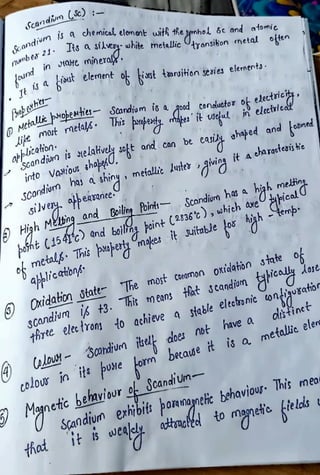 Scandium (Sc) :—
Scandium is a chemical element with the symbol Sc and atomic
number 21. Its a silvery-white metallic transition metal often
found in rare minerals.
• It is a first element of first transition series elements.
Properties—
① Metallic properties— Scandium is a good conductor of electricity,
like most metals. This property makes it useful in electrical
application.
→ Scandium is relatively soft and can be easily shaped and formed
into various shapes.
→ Scandium has a shiny, metallic luster, giving it a characteristic
silvery appearance.
② High Melting and Boiling Points— Scandium has a high melting
point (1541°c) and boiling point (2836°c), which are typical
of metals. This property makes it suitable for high-temp.
applications.
③ Oxidation State— The most common oxidation state of
scandium is +3. This means that scandium typically lose
three electrons to achieve a stable electronic configuration
④ Colour— Scandium itself does not have a distinct
colour in its pure form because it is a metallic elem
⑤ Magnetic behaviour of Scandium—
Scandium exhibits paramagnetic behaviour. This mea
that it is weakly attracted to magnetic fields